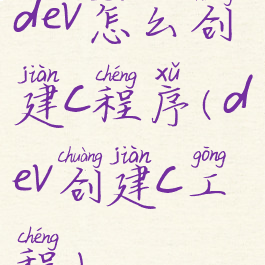 dev怎么创
jiàn chéng xǔ
建c程序(d
chuàng jiàn gōng
ev创建c工
chéng
程)